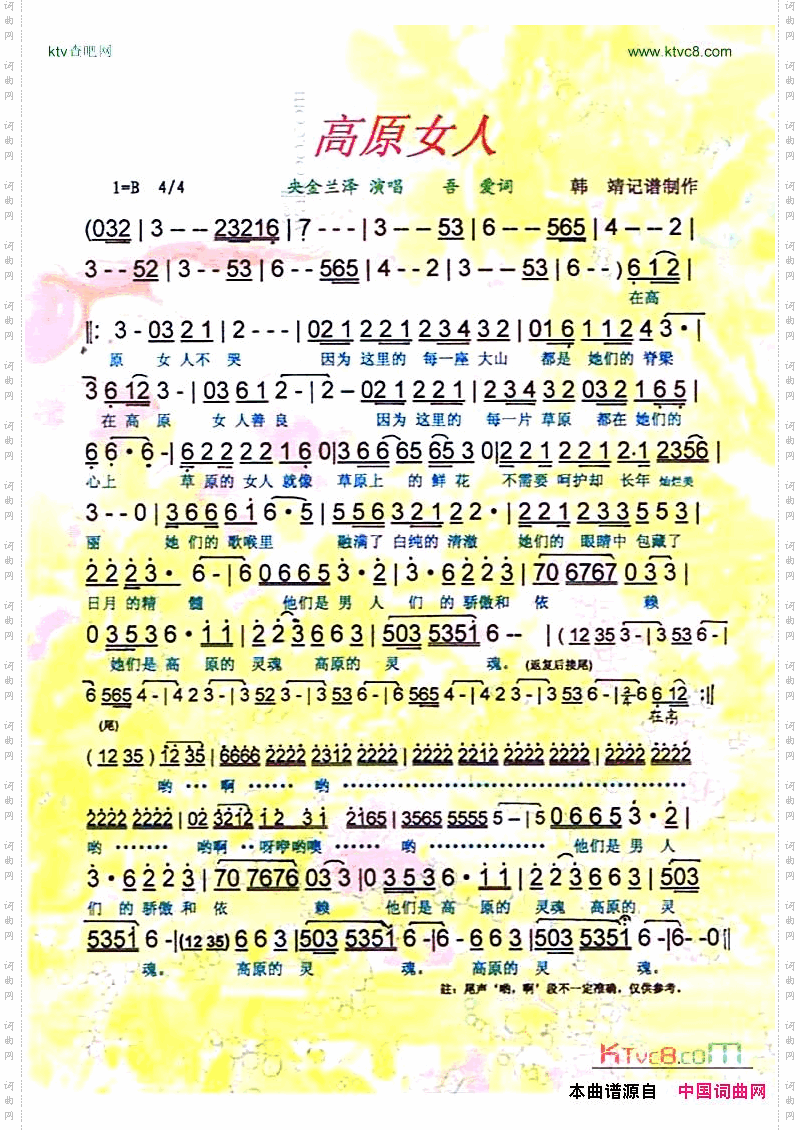 ktv查吧网 www.ktvc8.com
高原女人
1=B 4/4 央金兰泽 演唱 吾 爱词 韩 靖记谱制作
(032 | 3 -- 23216 | 7 --- | 3 -- 53 | 6 -- 565 | 4 -- 2 |
3 -- 52 | 3 -- 53 | 6 -- 565 | 4 -- 2 | 3 -- 53 | 6 -- ) 6 1 2 |
在高
‖: 3 - 03 2 1 | 2 --- | 02 1 2 2 1 2 3 4 3 2 | 01 6 1 1 2 4 3 · |
原 女 人不 哭 因为 这里的 每一座 大山 都是 她们的 脊梁
3 6 12 3 - | 03 6 1 2 - | 2 - 02 1 2 2 1 | 2 3 4 3 2 03 2 1 6 5 |
在 高 原 女 人善 良 因为 这里的 每一片 草原 都在 她们的
6 6 · 6 - | 6 2 2 2 2 1 6 0 | 3 6 6 65 65 3 0 | 2 2 1 2 2 1 2· 1 2356 |
心上 草 原的 女人 就像 草原上 的 鲜花 不需要 呵护却 长年 灿烂美
3 -- 0 | 3 6 6 6 1 6 · 5 | 5 5 6 3 2 1 2 2 · | 2 1 2 3 3 5 5 3 |
丽 她 们的 歌喉里 融满了 白纯的 清澈 她们的 眼睛中 包藏了
2 2 2 3 · 6 - | 6 0 6 6 5 3 · 2 | 3 · 6 2 2 3 | 70 6767 0 3 3 |
日月 的精 髓 他们是 男 人 们 的 骄傲和 依 赖
0 3 5 3 6 · 1 1 | 2 2 3 6 6 3 | 503 5351 6 -- | (12 35 3 - | 3 53 6 - |
她们是 高 原的 灵魂 高原的 灵 魂。 (返复后接尾)
6 565 4 - | 4 2 3 - | 3 52 3 - | 3 53 6 - | 6 565 4 - | 4 2 3 - | 3 53 6 - | 2/4 6 6 12 :‖
(尾) 在高
(12 35) 12 35 | 6666 2222 2312 2222 | 2222 2212 2222 2222 | 2222 2222
哟 ··· 啊 ······ 哟 ··································
2222 2222 | 02 3212 12 31 2165 | 3565 5555 5 - | 5 0 6 6 5 3 · 2 |
哟 ······· 哟啊 ··呀咿哟噢 ······ 哟 ··············· 他们是 男 人
3 · 6 2 2 3 | 70 7676 03 3 | 0 3 5 3 6 · 1 1 | 2 2 3 6 6 3 | 503
们 的 骄傲 和 依 赖 他们是 高 原的 灵魂 高原的 灵
5351 6 - | (12 35) 6 6 3 | 503 5351 6 - | 6 - 6 6 3 | 503 5351 6 - | 6 - - 0 ‖
魂。 高原的 灵 魂。 高原的 灵 魂。
註：尾声‘哟，啊’段不一定准确，仅供参考.
KTVc8.com
本曲谱源自 中国词曲网